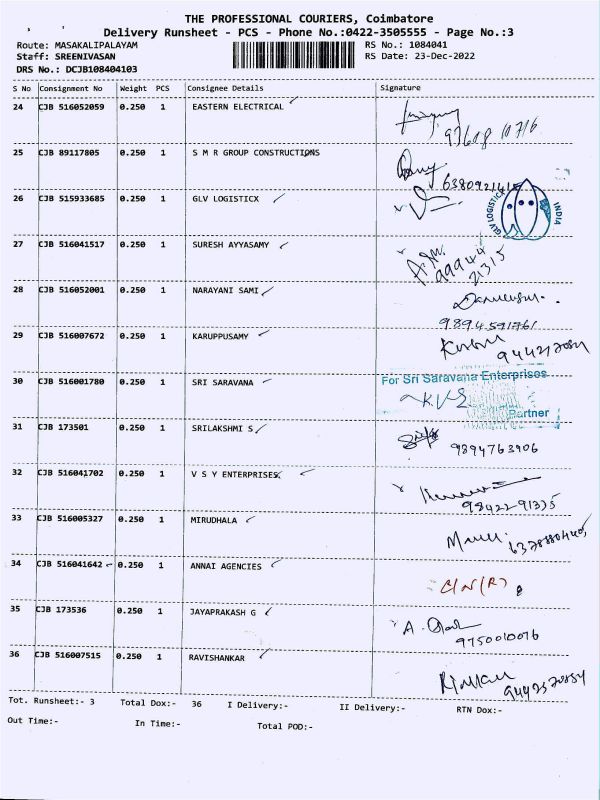 THE PROFESSIONAL COURIERS, Coimbatore
Delivery Runsheet - PCS - Phone No.:0422-3505555 - Page No.:3
Route: MASAKALIPALAYAM RS No.: 1084041
Staff: SREENIVASAN RS Date: 23-Dec-2022
DRS No.: DCJB108404103
S No Consignment No Weight PCS Consignee Details Signature
24 CJB 516052059 0.250 1 EASTERN ELECTRICAL
25 CJB 89117805 0.250 1 S M R GROUP CONSTRUCTIONS
26 CJB 515933685 0.250 1 GLV LOGISTICX GLV LOGISTICX INDIA
27 CJB 516041517 0.250 1 SURESH AYYASAMY
28 CJB 516052001 0.250 1 NARAYANI SAMI
9894591761
29 CJB 516007672 0.250 1 KARUPPUSAMY
30 CJB 516001780 0.250 1 SRI SARAVANA For Sri Saravana Enterprises
Partner
31 CJB 173501 0.250 1 SRILAKSHMI S
9894763906
32 CJB 516041702 0.250 1 V S Y ENTERPRISES
98422-91335
33 CJB 516005327 0.250 1 MIRUDHALA
34 CJB 516041642 0.250 1 ANNAI AGENCIES
35 CJB 173536 0.250 1 JAYAPRAKASH G
9750010076
36 CJB 516007515 0.250 1 RAVISHANKAR
Tot. Runsheet:- 3 Total Dox:- 36 I Delivery:- II Delivery:- RTN Dox:-
Out Time:- In Time:- Total POD:-